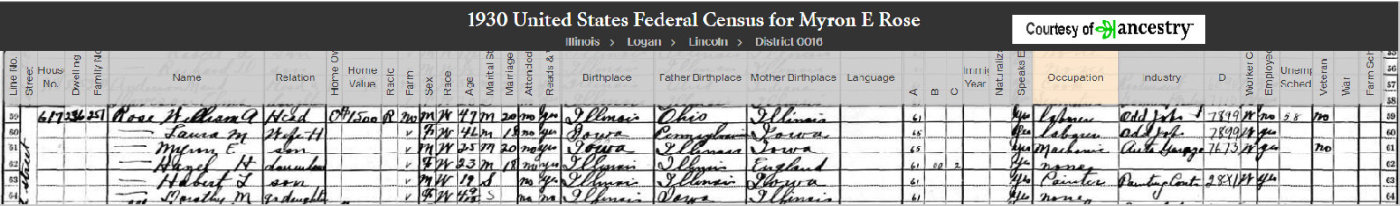 1930 United States Federal Census for Myron E Rose
Courtesy of ancestry
Illinois > Logan > Lincoln > District 0016
Line No. Street Hous No. Dwelling Family No Name Relation Home Ow Home Value Radio Farm Sex Race Age Marital S Marriage Attended Reads & Birthplace Father Birthplace Mother Birthplace Language A B C Immig Year Naturaliz Speaks E Occupation Industry D Worker C Employe Unemp Sched Veteran War Farm Sch
59 617 236 257 Rose William A Head O 1,500 R no M W 47 M 20 no yes Illinois Ohio Illinois 61 yes laborer odd jobs 7899 W no 58 no 59
60 Laura M Wife H v F W 46 M 18 no yes Iowa Pennsylvania Iowa 65 yes laborer odd jobs 7899 W yes 60
61 Myron E son v M W 25 M 20 no yes Iowa Illinois Iowa 65 yes Mechanic Auto Garage 7673 W yes no 61
62 Hazel H v F W 23 M 18 no yes Illinois Illinois England 61 00 2 yes none 62
63 son v M W 19 S no yes Illinois Illinois Iowa 61 yes Painter Painting W yes 63
64 Dorothy M v F W S no no Illinois Iowa Illinois 61 none 64
street